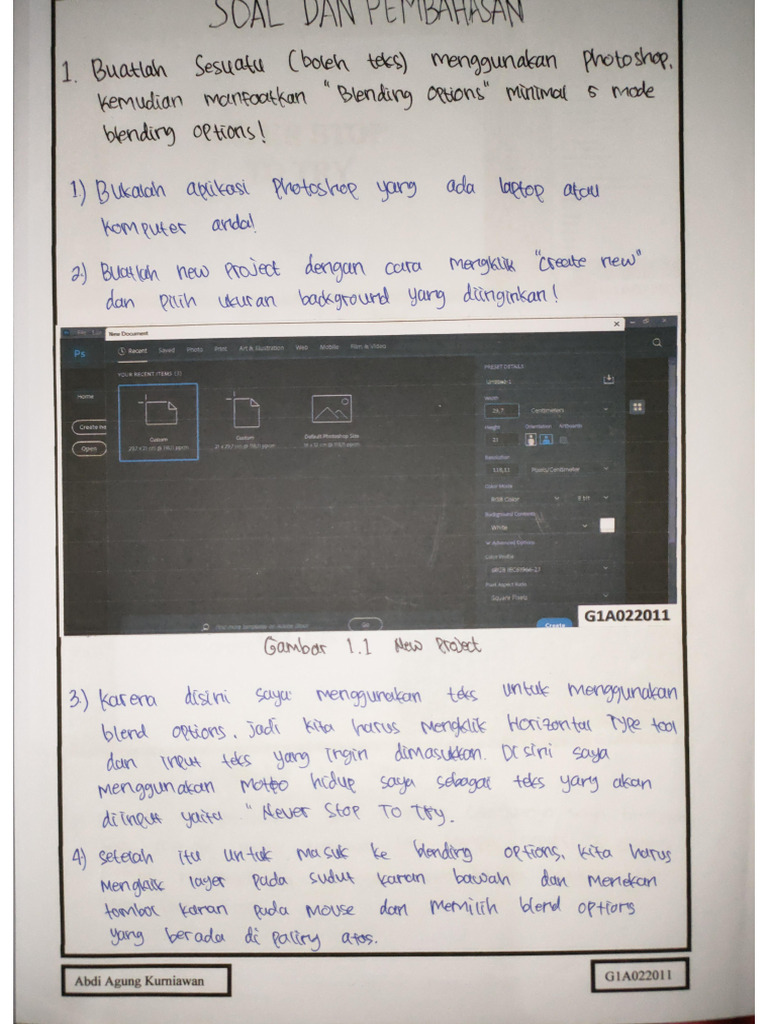 SOAL DAN PEMBAHASAN
1. Buatlah Sesuatu (boleh teks) menggunakan photoshop,
kemudian manfaatkan "Blending Options" minimal 5 mode
blending options!
1) Bukalah aplikasi photoshop yang ada laptop atau
komputer anda!
2.) Buatlah new project dengan cara mengklik "create new"
dan pilih ukuran background yang diinginkan!
New Document
Ps
Recent Saved Photo Print Art & Illustration Web Mobile Film & Video
YOUR RECENT ITEMS (3)
PRESET DETAILS
Untitled-1
Home
Width
29,7 Centimeters
Create new
Open
Height Orientation Artboards
21
Custom
Custom
Default Photoshop Size
Resolution
Pixels/Centimeter
Color Mode
RGB Color 8 bit
Background Contents
White
Advanced Options
Color Profile
sRGB IEC61966-2.1
Pixel Aspect Ratio
Square Pixels
Find more templates on Adobe Stock
Go
Create
G1A022011
Gambar 1.1 New Project
3.) Karena disini saya menggunakan teks untuk menggunakan
blend options, jadi kita harus mengklik Horizontal Type tool
dan input teks yang ingin dimasukkan. Di sini saya
menggunakan motto hidup saya sebagai teks yang akan
diinput yaitu "Never Stop To Try.
4) setelah itu untuk masuk ke blending options, kita harus
mengklik layer pada sudut kanan bawah dan menekan
tombol kanan pada mouse dan memilih blend options
yang berada di paling atas.
Abdi Agung Kurniawan
G1A022011